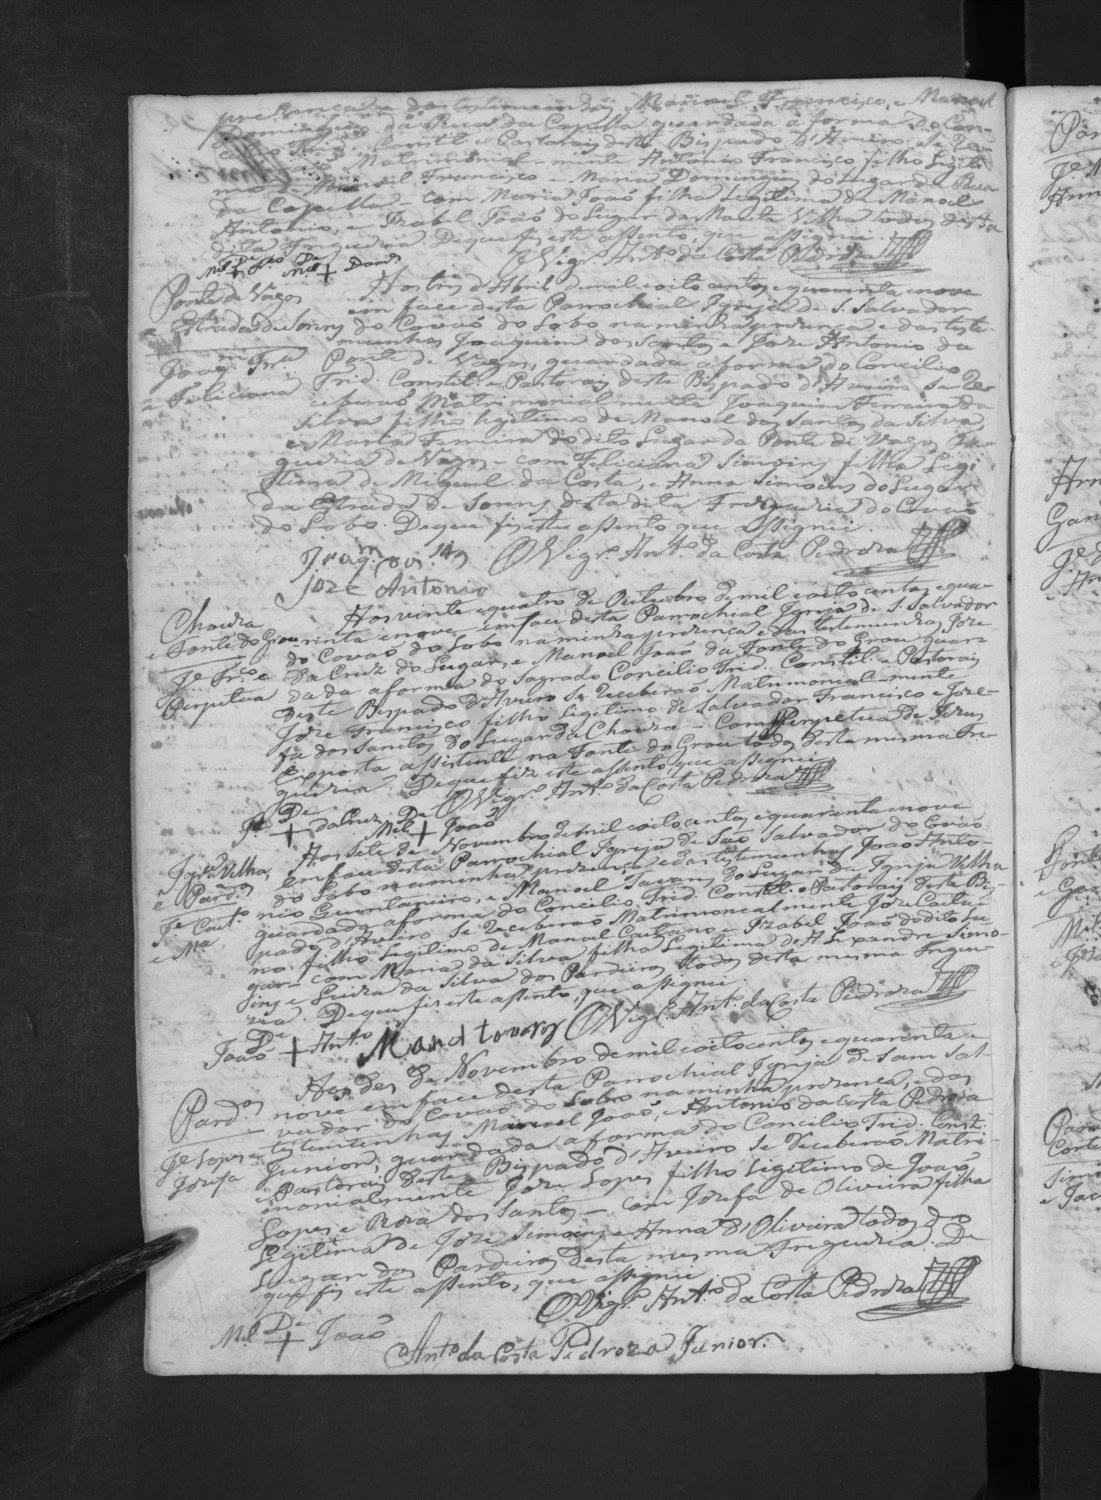 presença e das testimunhas Manoel Francisco, e Manoel
Domingues da Rua da Capella guardada a forma do Con-
cilio Trid. Constit. e Pastorais deste Bispado d'Aveiro se Re-
Matrimonial-mente Antonio Francisco filho Legiti-
mo de Manoel Francisco e Maria Domingues do Lugar da Rua
da Capella - com Maria Joaõ filha Legitima de Manoel
Antonio, e Izabel Joaõ do Lugar da Mata Velha todos desta
dita Freguezia. Deque fiz este assento, que assignei.
O Vigr.º Ant.º da Costa Pedroza
M.el De + Fr.co M.el De + Dom.es
Ponte de Vagos
e Estrada de Sorens
Joaq.m Fr.ª
e Feliciana
Aos tres d'Abril de mil e oito centos e quarenta e nove
em face desta Parrochial Igreja de S. Salvador
do Covaõ do Lobo na minha presença e das teste-
munhas Joaquim dos Santos e Joze Antonio da
Ponte de Vagos, guardada a forma do Concilio
Trid. Constit. e Pastorais deste Bispado d'Aveiro se Re-
ceberaõ Matrimonial mente Joaquim Ferreira da
Silva filho ligitimo de Manoel dos Santos da Silva,
e Maria Ferreira do dito Lugar da Ponte de Vagos Fre-
guezia de Vagos - com Feliciana Simoins filha Legi-
tima de Miguel da Costa, e Anna Simoins do Lugar
da Estrada de Sorens desta dita Freguezia do Covaõ
do Lobo. Deque fiz este assento que assignei.
O Vigr.º Ant.º da Costa Pedroza
Joaq.m dos S.tos
Joze Antonio
Choura
e Fonte do Grou
J.e Fr.co e
Perpetua
Aos vinte e quatro de Outubro de mil e oito centos e qua-
renta e nove - em face desta Parrochial Igreja de S. Salvador
do Covaõ do Lobo na minha prezença e das testemunhas Joze
da Cruz do Lugar, e Manoel Joaõ da Fonte do Grou guar-
dada a forma do Sagrado Concilio Trid. Constit. e Pastorais
deste Bispado d'Aveiro se Receberaõ Matrimonial-mente
Joze Francisco filho Ligitimo de Salvador Francisco e Joze-
fa dos Santos do Lugar da Choura - com Perpetua de Jezus
Exposta assistente na Fonte do Grou todos desta mesma Fre-
guezia. Deque fiz este assento, que assignei
O Vigr.º Ant.º da Costa Pedroza
J.e De + da Cruz M.el De + Joaõ
Igr.ª Velha,
e Pard.os
J.e Caet.º
e M.ª
Aos sete de Novembro de mil e oito centos e quarenta e nove
em face desta Parrochial Igreja de Saõ Salvador do Covaõ
do Lobo na minha prezença e das testemunhas Joaõ Anto-
nio Quintaneiro, e Manoel Tavares do Lugar da Igreja Velha
guardada a forma do Concilio Trid. Constit. e Pastorais deste Bis-
pado d'Aveiro se Receberaõ Matrimonealmente Joze Caeta-
no filho Legitimo de Manoel Caetano e Izabel Joaõ do dito Lu-
gar - com Maria da Silva filha Legitima de Alexandre Simo-
ins, e Luiza da Silva dos Pardieiros todos desta mesma Fregue-
zia. Deque fiz este assento, que assignei
O Vigr.º Ant.º da Costa Pedroza
Joaõ De + Ant.º Manoel tovares
Pard.os
J.e Lopes e
Jozefa
Aos dez de Novembro de mil e oito centos e quarenta e
nove em face desta Parrochial Igreja de Sam Sal-
vador do Covaõ do Lobo na minha prezença, e das
testemunhas Manoel Joaõ, e Antonio da Costa Pedroza
Junior, guardada a forma do Concilio Trid. Const.
e Pastorais deste Bispado d'Aveiro se Receberaõ Matri-
monialmente Joze Lopes filho Ligitimo de Joaõ
Lopes, e Roza dos Santos - com Jozefa de Oliveira filha
Legitima de Joze Simoins e Anna d'Oliveira todos do
Lugar dos Pardieiros desta mesma Freguezia. De
que fiz este assento, que assignei
O Vigr.º Ant.º da Costa Pedroza
M.el De + Joaõ
Ant.º da Costa Pedroza Junior.